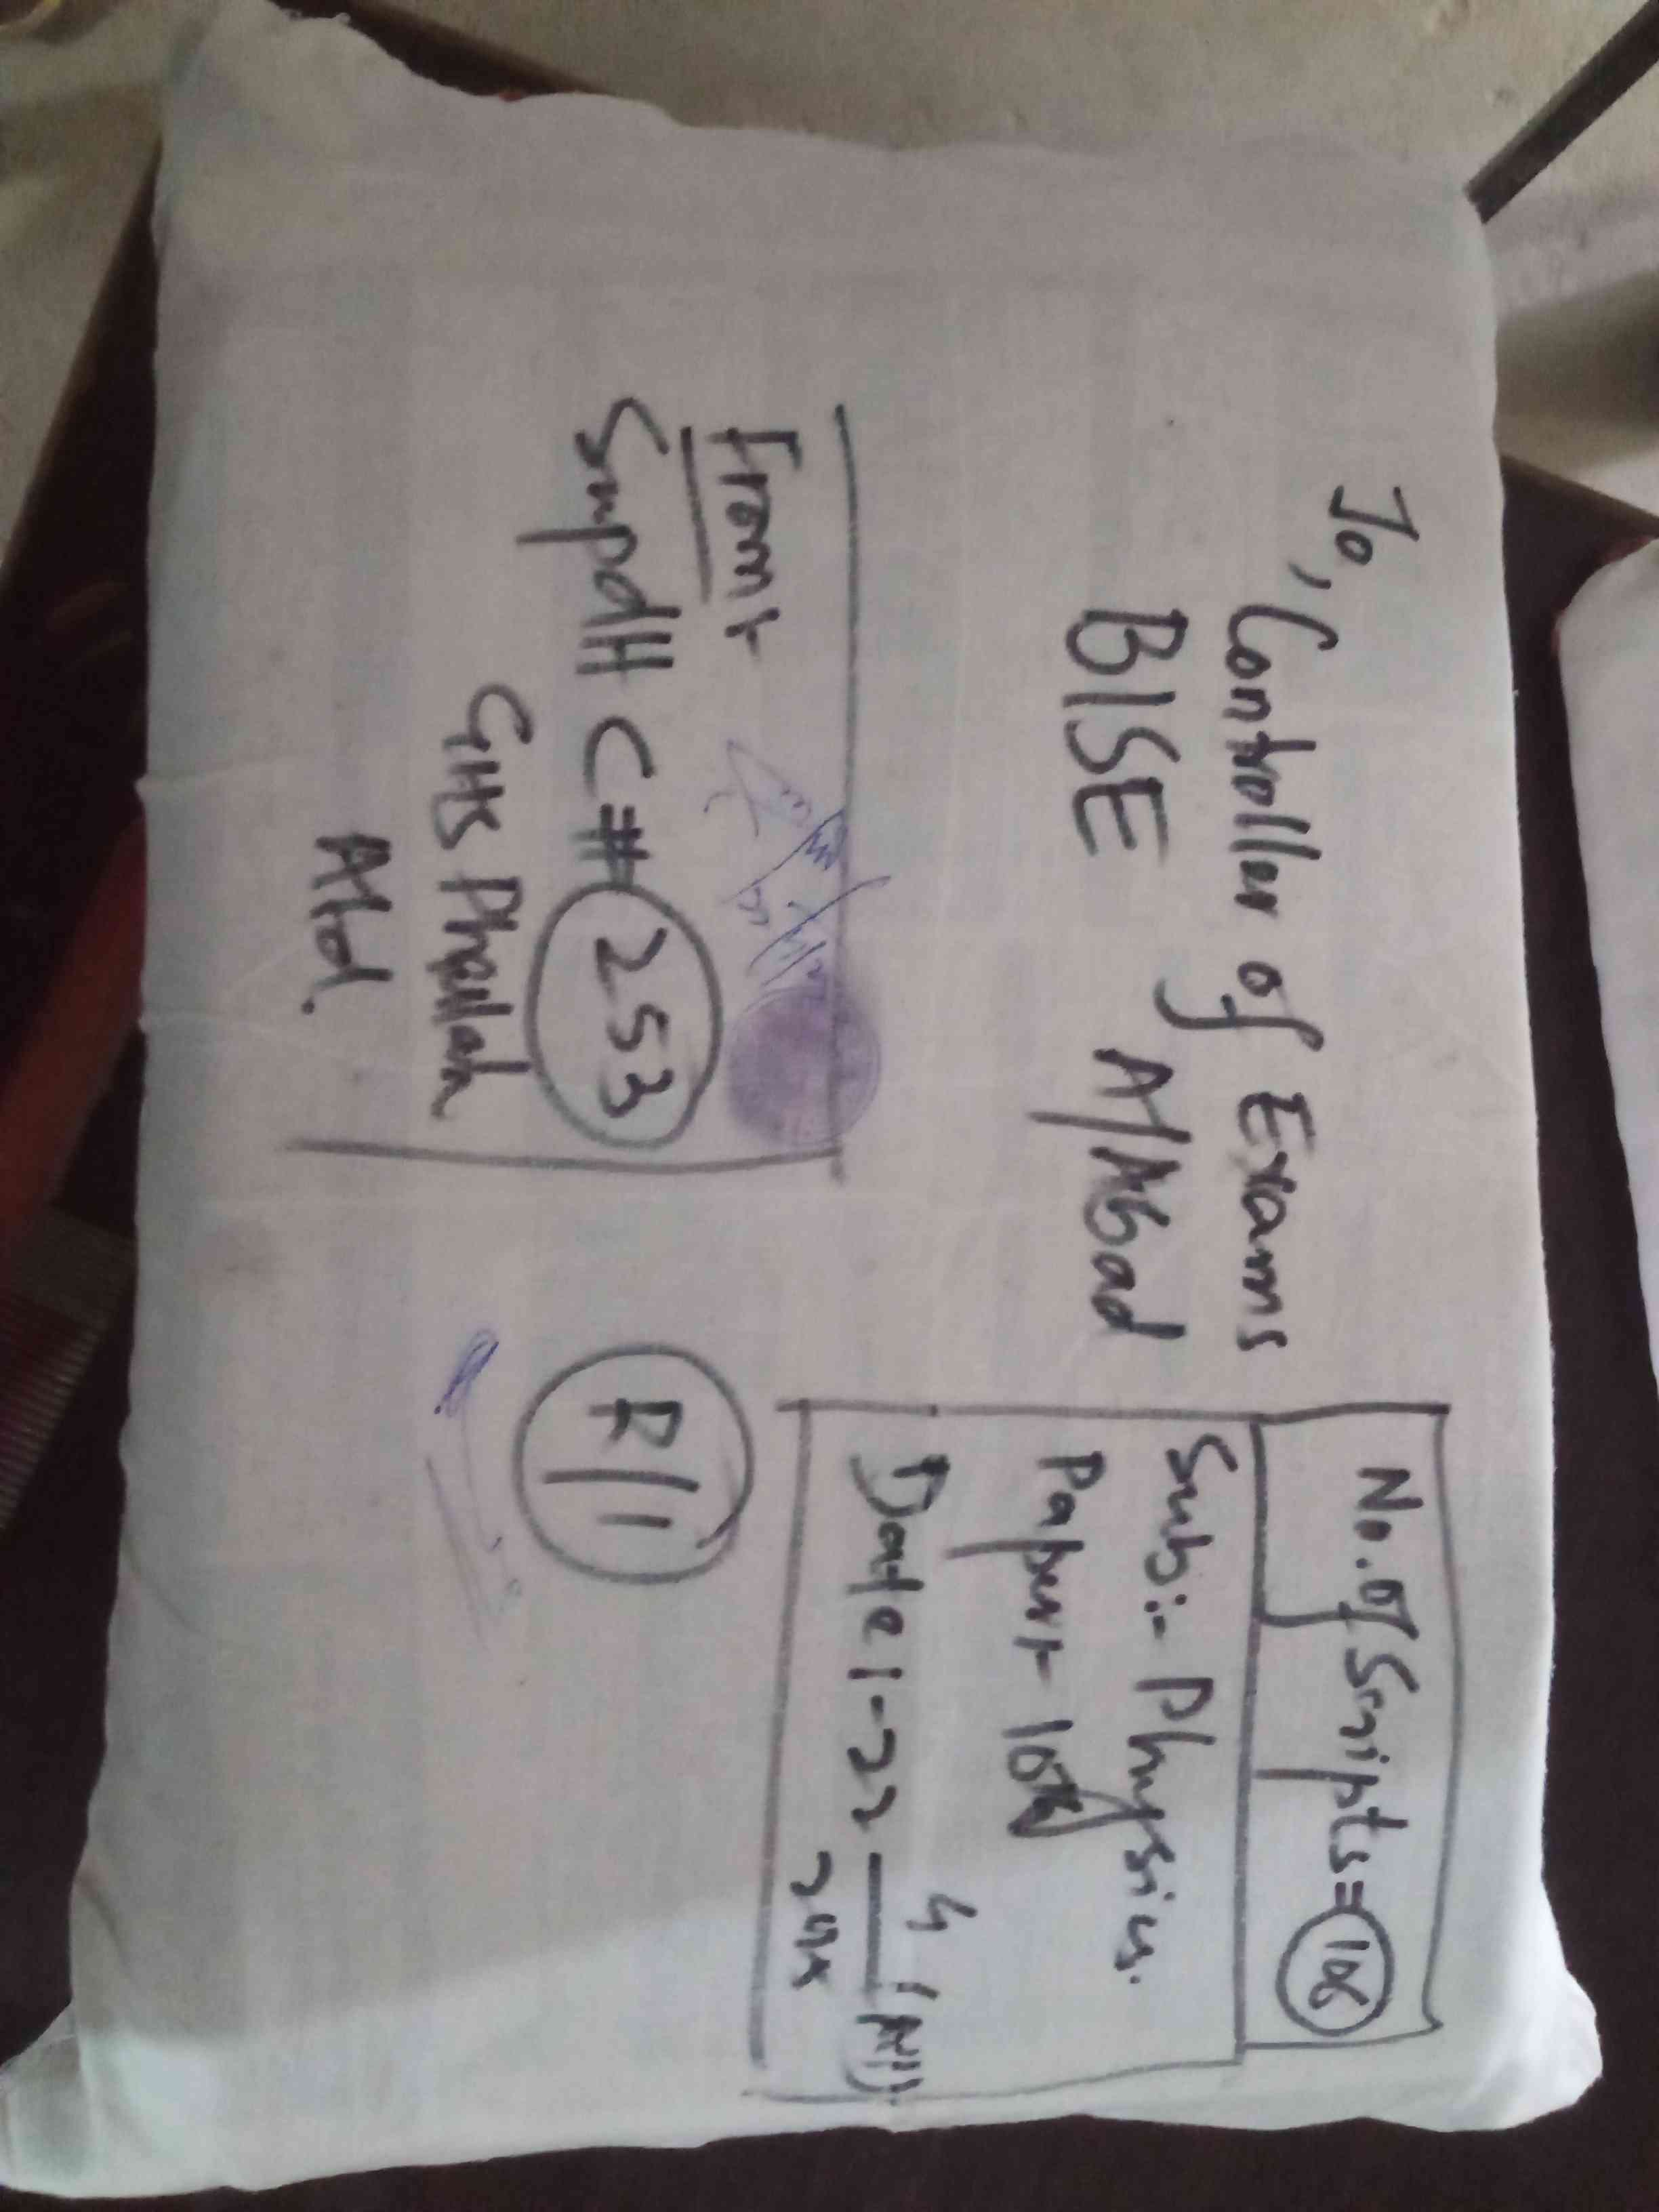 To,
Controller of Exams
BISE A/Abad
No. of Scripts = 106
Sub:- Physics.
Paper:- 10th
Date:- 22/4/2025 (A)
From:-
Supdtt C=# 253
GHS Phallah
Atd.
R/1